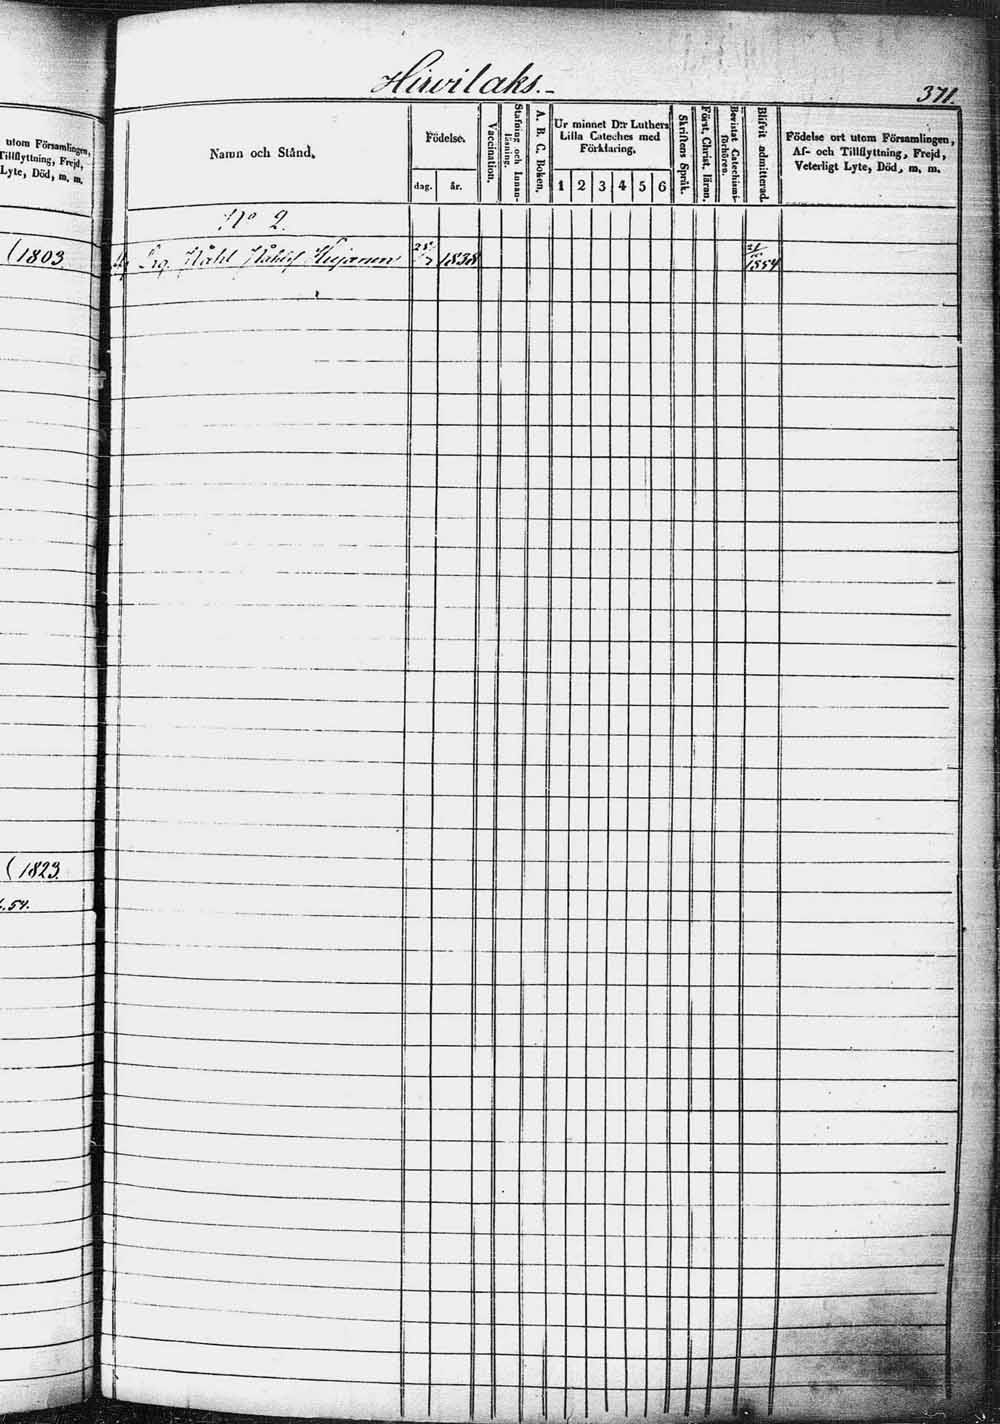 Hirvilaks.
371.
utom Församlingen,
Tillflyttning, Frejd,
Lyte, Död, m. m.
(1803.
(1823.
.54.
Namn och Stånd.
Födelse.
dag.
år.
Vaccination.
Stafning och Innanläsning.
A. B. C. Boken.
Ur minnet D:r Luthers
Lilla Cateches med
Förklaring.
1 2 3 4 5 6
Skriftens Språk.
Först. Christ. läran.
Bevistat Catechismi-förhören.
Blifvit admitterad.
Födelse ort utom Församlingen,
Af- och Tillflyttning, Frejd,
Veterligt Lyte, Död, m. m.
No 2.
1838
1854